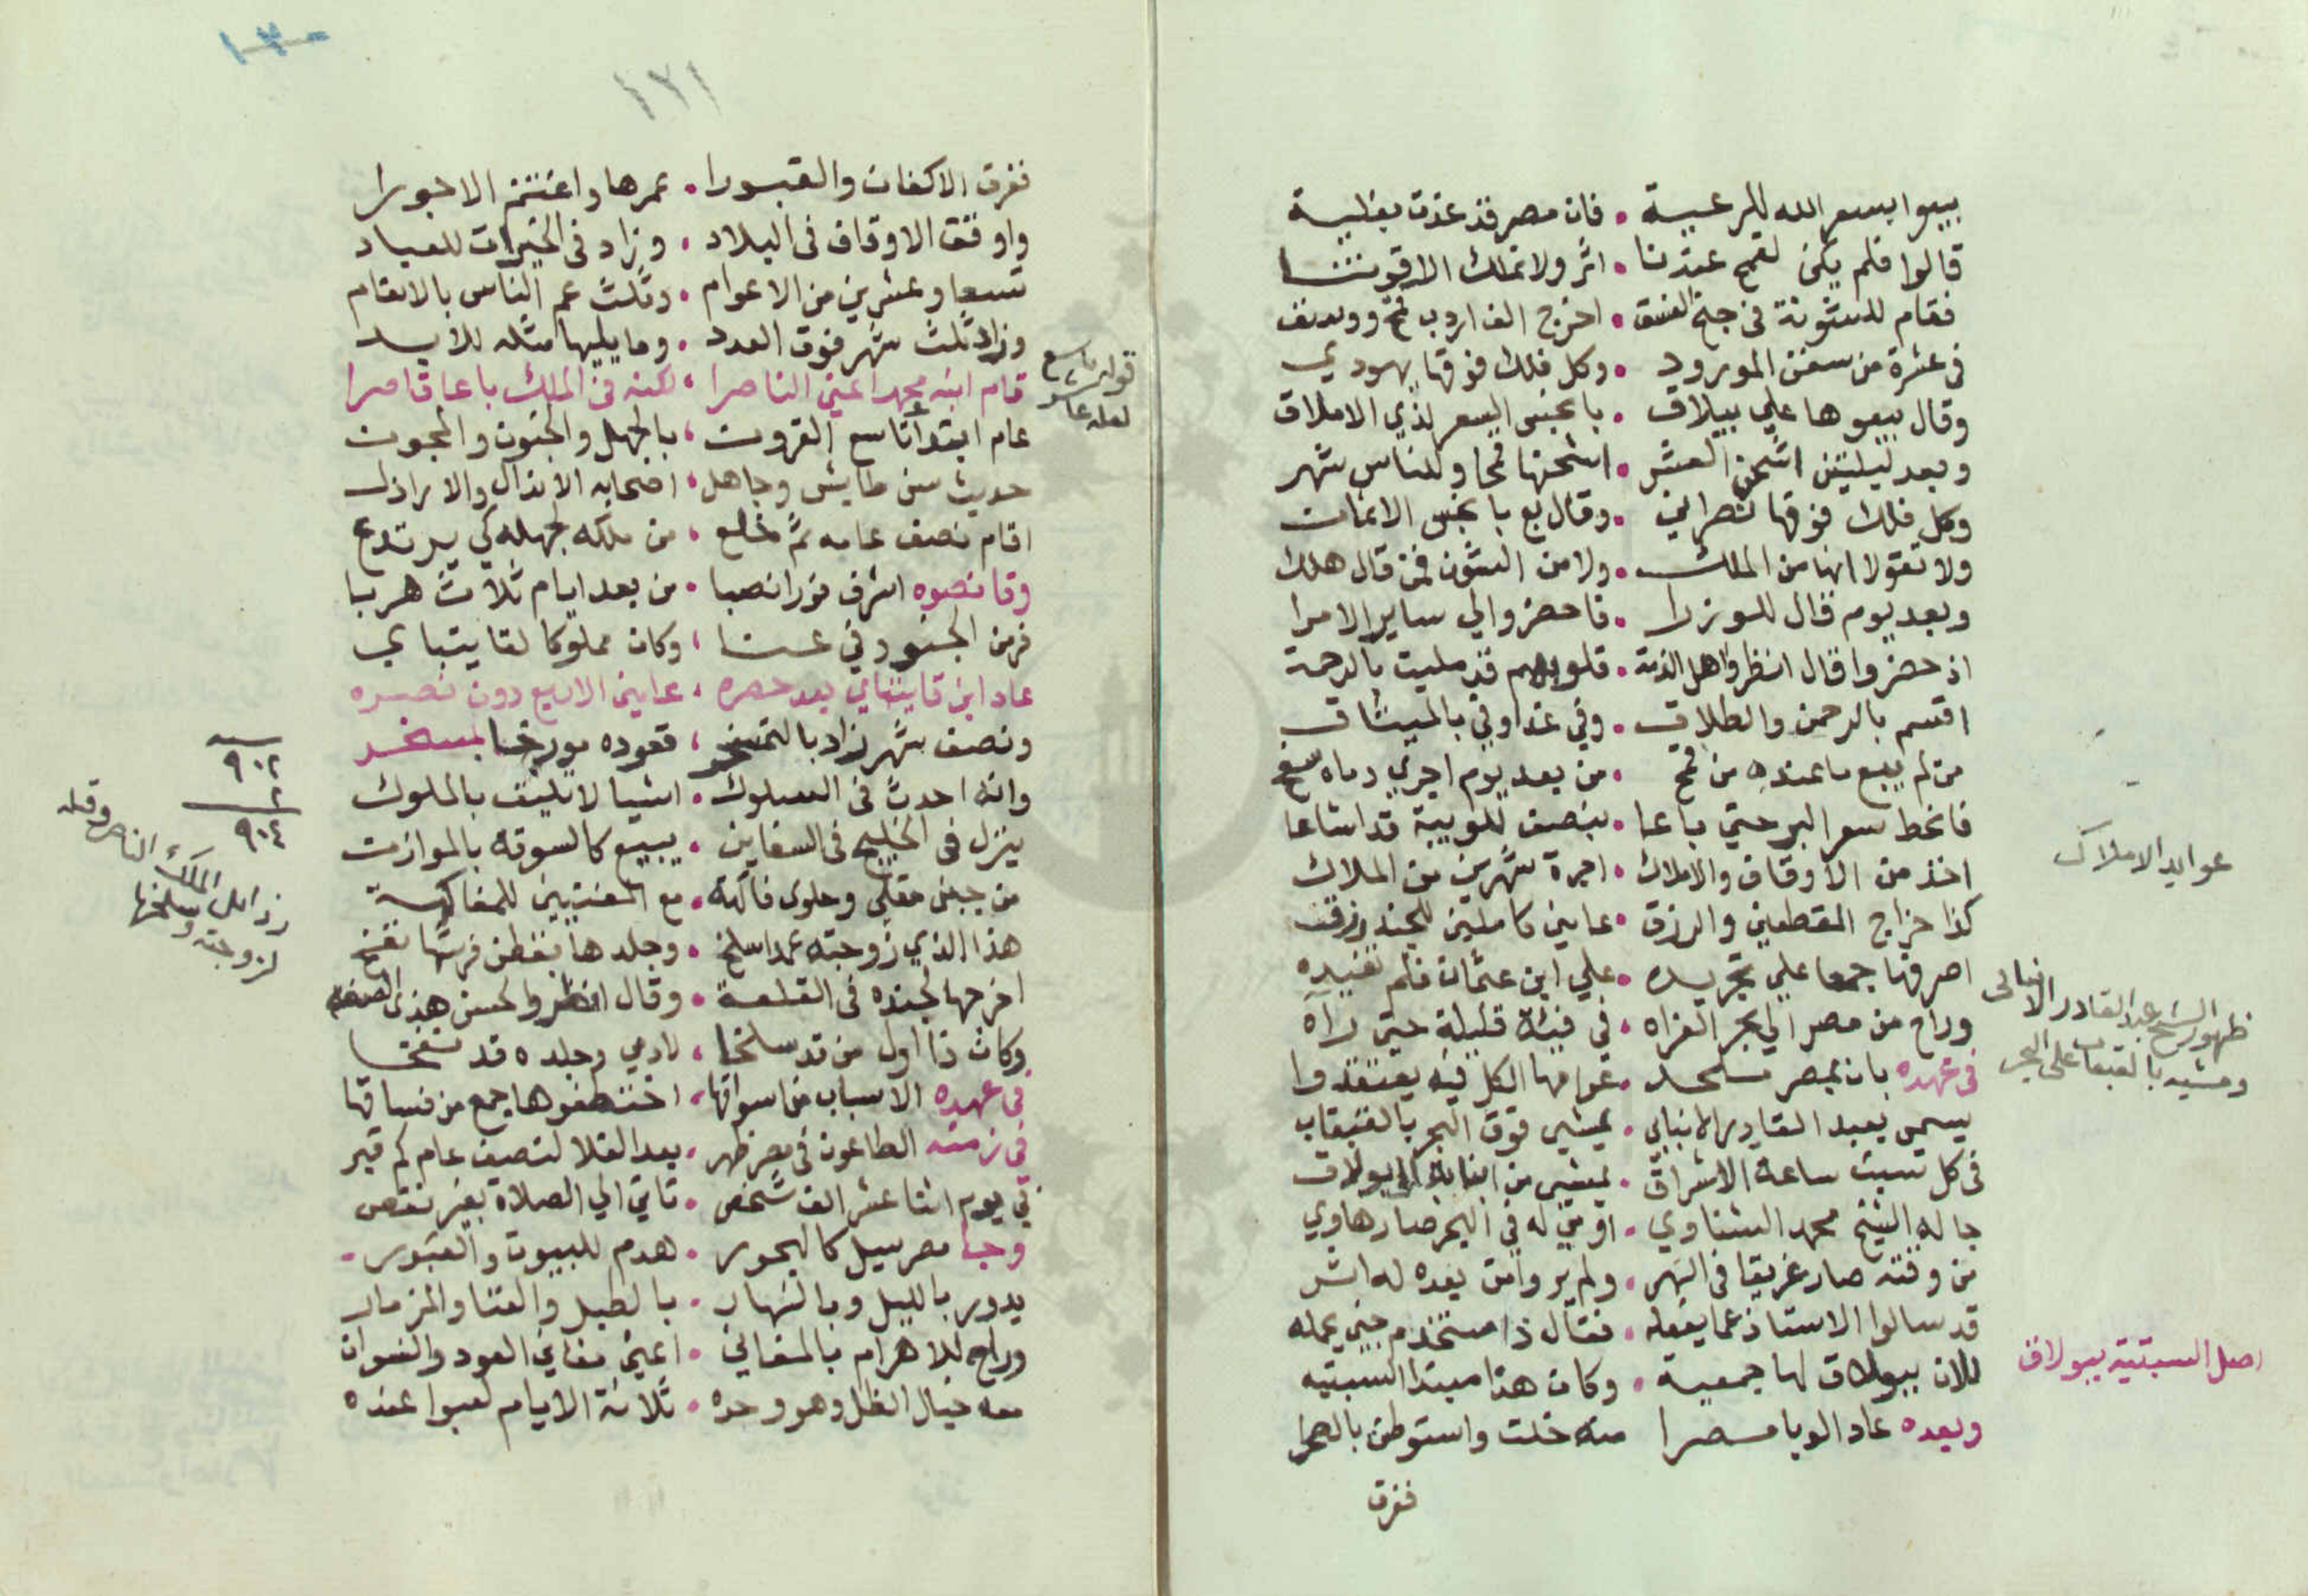 بيعوا بسعر الله للرعية • فان مصر قد غدت بغلية
قالوا فلم يكن لقمح عندنا • اثر ولا نملك الا قوتنا
فقام للشونة في جنح الغسق • اخرج الف اردب قمح ووسق
في عشرة من سفن المورود • وكل فلك فوقها يهودي
وقال بيعوها علي بيلاق • بابخس السعر لذي الاملاق
وبعد ليلتين اشحن العشر • اشحنها قمحا وللناس شهر
وكل فلك فوقها نصراني • وقال بع بابخس الاثمان
ولا تقولا انها من الملك • ولا من الشون فمن قال هلك
وبعد يوم قال للوزرا • فاحضروا لي ساير الامرا
اذ حضروا قال انظروا اهل الذمة • قلوبهم قد مليت بالرحمة
اقسم بالرحمن والطلاق • وفي غد اوفي بالميثاق
من لم يبيع ما عنده من قمح • من بعد يوم اجري دماه سفح
فانحط سعر البر حتي باعا • بنصف للويبة قد اشاعا
اخذ من الاوقاف والاملاك • اجرة شهرين من الملاك
عوايد الاملاك
كذا خراج المقطعين والرزق • عامين كاملين للجند رزق
اصرفها جمعا علي تجريده • علي ابن عثمان فلم تفيده
وراح من مصر الي بحر الغزاه • في فيئة قليلة حتي رآه
ظهور الشيخ عبد القادر الانبابى
ومشيه بالقبقاب على البحر
في عهده بان بمصر ملحد • عوامها الكل فيه يعتقدوا
يسمى بعبد القادر الانبابي • يمشي فوق البحر بالقبقاب
في كل سبت ساعة الاشراق • يمشي من انبابة الي بولاق
جا له الشيخ محمد الشناوي • اومي له في البحر صار هاوي
من وقته صار غريقا في النهر • ولم يروا من بعده له اثر
قد سالوا الاستاذ عما يفعله • فقال ذا مستخدم جني يحمله
للان ببولاق لها جمعية • وكان هذا مبتدا السبتيه
اصل السبتية ببولاق
وبعده عاد الوبا مصرا منه خلت واستوطن بالصحرا
ففرق
١٢١
ففرق الاكفان والقبورا • عمرها واغتنم الاجورا
واوقف الاوقاف في البلاد • وزاد في الخيرات للعباد
تسعا وعشرين من الاعوام • وثلث عم الناس بالانعام
وزاد ثلث شهر فوق العدد • وما يليها مثله للابد
قام ابنه محمد اعني الناصرا • لكنه في الملك باعا قاصرا
قوله تاسع
لعله عاشر
عام ابتدا تاسع القرون • بالجهل والجنون والمجون
حديث سن طايش وجاهل • اصحابه الانذال والاراذل
اقام نصف عامه ثم خلع • من ملكه لجهله كي يرتدع
وقانصوه اشرف فورا نصبا • من بعد ايام ثلاث هربا
فر من الجنود في عنا • وكان مملوكا لقايتباي
عاد ابن قايتباي بعد حصره • عامين الاربع دون نصره
ونصف شهر زاد بالتمسخر • قعوده مورخا بمسخر
٩٠٢
٢
٩٠٤
وانه احدث في السلوك • اشيا لا تليق بالملوك
ينزل في الخليج في السفاين • يبيع كالسوقة بالموازن
من جبن مقلي وحلوى فاكهة • مع المغنيين للمفاكهة
رذايل الملك الناصر وقتله
لزوجته وسلخها
هذا الذي زوجته عمدا سلخ • وجلدها بقطن فرشها نفخ
اخرجها لجنده في القلعة • وقال انظروا لحسن هذي الصنعه
وكان ذا اول من قد سلخا • لادمي وجلده قد نفخا
في عهده الاسباب من اسواقها • اختطفوها جمع من فساقها
في زمنه الطاعون في مصر ظهر • بعد الغلا لنصف عام كم قبر
في يوم اثنا عشر الف شخص • تاتي الي الصلاة بغير نقص
وجا مصر سيل كالبحور • هدم للبيوت والقبور
يدور بالليل وبالنهار • بالطبل والغنا والمزمار
وراح للاهرام بالمغاني • اعني مغاني العود والنسوان
معه خيال الظل وهو وحده • ثلاثة الايام لعبوا عنده